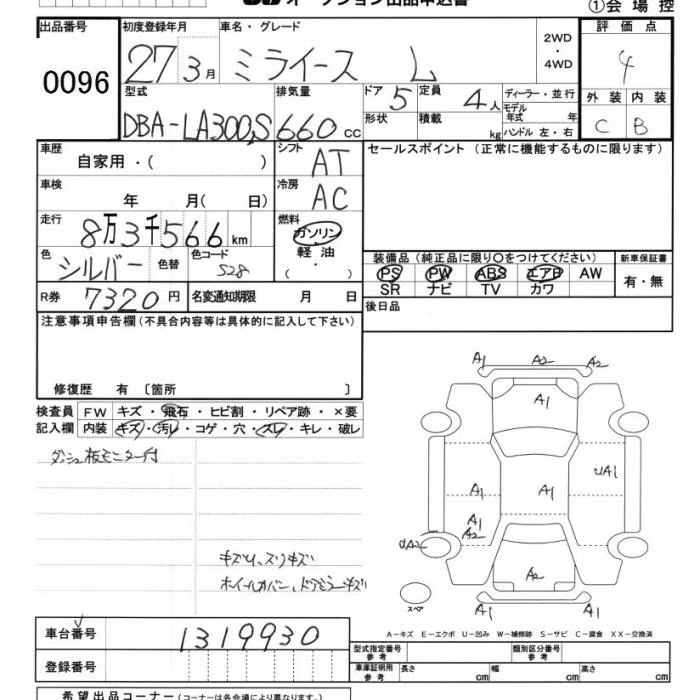 オークション出品申込書
①会場控
出品番号
0096
初度登録年月
27 3月
車名・グレード
ミライース L
2WD
・
4WD
評価点
4
外装 内装
C B
型式
DBA-LA300S
排気量
660 cc
ドア 5
定員 4人
ディーラー・並行
モデル年式 年
形状
積載 kg
ハンドル 左・右
車歴
自家用・( )
シフト
AT
セールスポイント (正常に機能するものに限ります)
車検
年 月( 日)
冷房
AC
走行
8万3千566 km
燃料
ガソリン
・
軽油
( )
色
シルバー
色替
色コード
S28
装備品 (純正品に限り○をつけてください)
PS PW ABS エアB AW
SR ナビ TV カワ
新車保証書
有・無
R券 7320円
名変通知期限 月 日
後日品
注意事項申告欄 (不具合内容等は具体的に記入して下さい)
修復歴 有 〔箇所 〕
検査員
記入欄
FW キズ・飛石・ヒビ割・リペア跡・×要
内装 キズ・汚レ・コゲ・穴・スレ・キレ・破レ
キズU、スリキズ
ホイールカバー、ドアミラーキズ
A1 A2 A2
A1
UA1
A1 A1
A1
A2
UA2
A2
A1 A1
スペア
A−キズ E−エクボ U−凹み W−補修跡 S−サビ C−腐食 XX−交換済
車台番号
1319930
登録番号
型式指定番号
参考
類別区分番号
参考
車庫証明用
参考
長さ cm
幅 cm
高さ cm
希望出品コーナー (コーナーは各会場により異なります。)